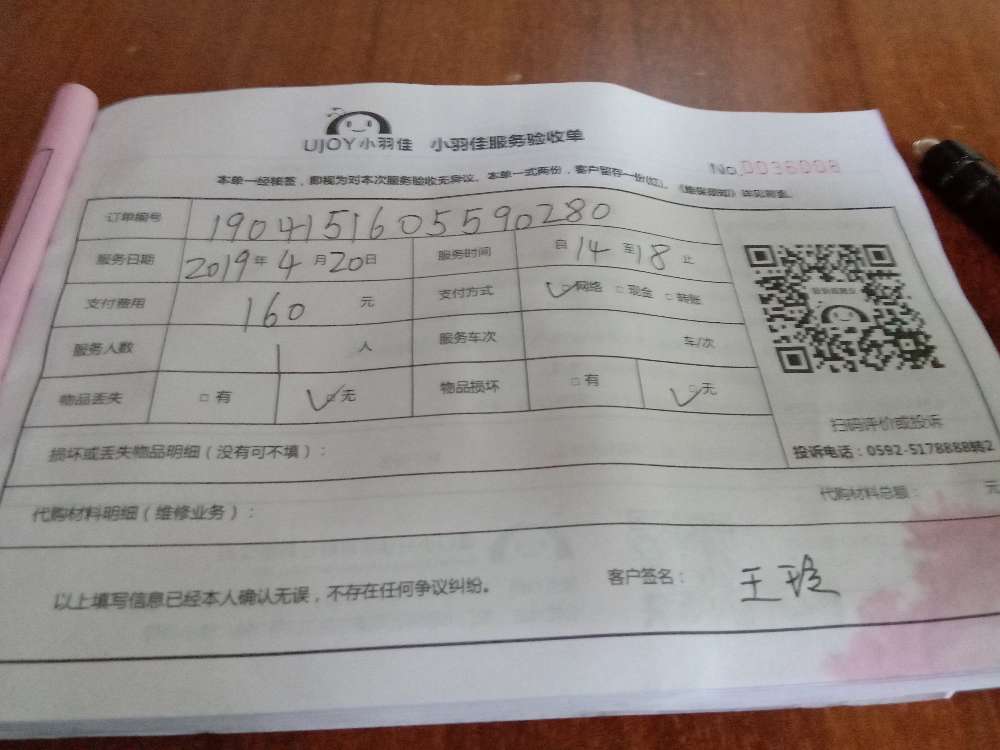 UJOY小羽佳 小羽佳服务验收单
No.0036008
本单一经接签，即视为对本次服务验收无异议。本单一式两份，客户留存一份(红)。
订单编号 1904151605590280
服务日期 2019年4月20日 服务时间 自14至18止
支付费用 160元 支付方式 ☑网络 □现金 □转账
服务人数 1人 服务车次 车/次
物品丢失 □有 ☑无 物品损坏 □有 ☑无
扫码评价或投诉
投诉电话：0592-5178888转2
损坏或丢失物品明细（没有可不填）：
代购材料明细（维修业务）： 代购材料总额： 元
以上填写信息已经本人确认无误，不存在任何争议纠纷。 客户签名：王玲